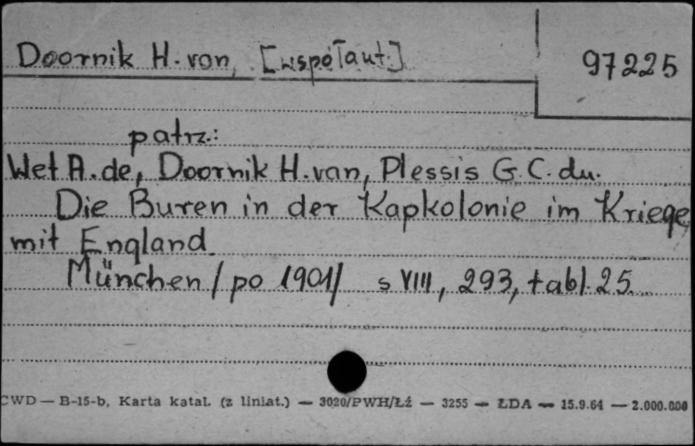 Doornik H. van, [współaut.]
97225
patrz:
Wet A. de, Doornik H. van, Plessis G. C. du.
Die Buren in der Kapkolonie im Kriege
mit England.
München /po 1901/ s VIII, 293, tabl. 25.
CWD — B-15-b, Karta katal. (z liniat.) — 3020/PWH/Łź — 3255 — ŁDA — 15.9.64 — 2.000.000